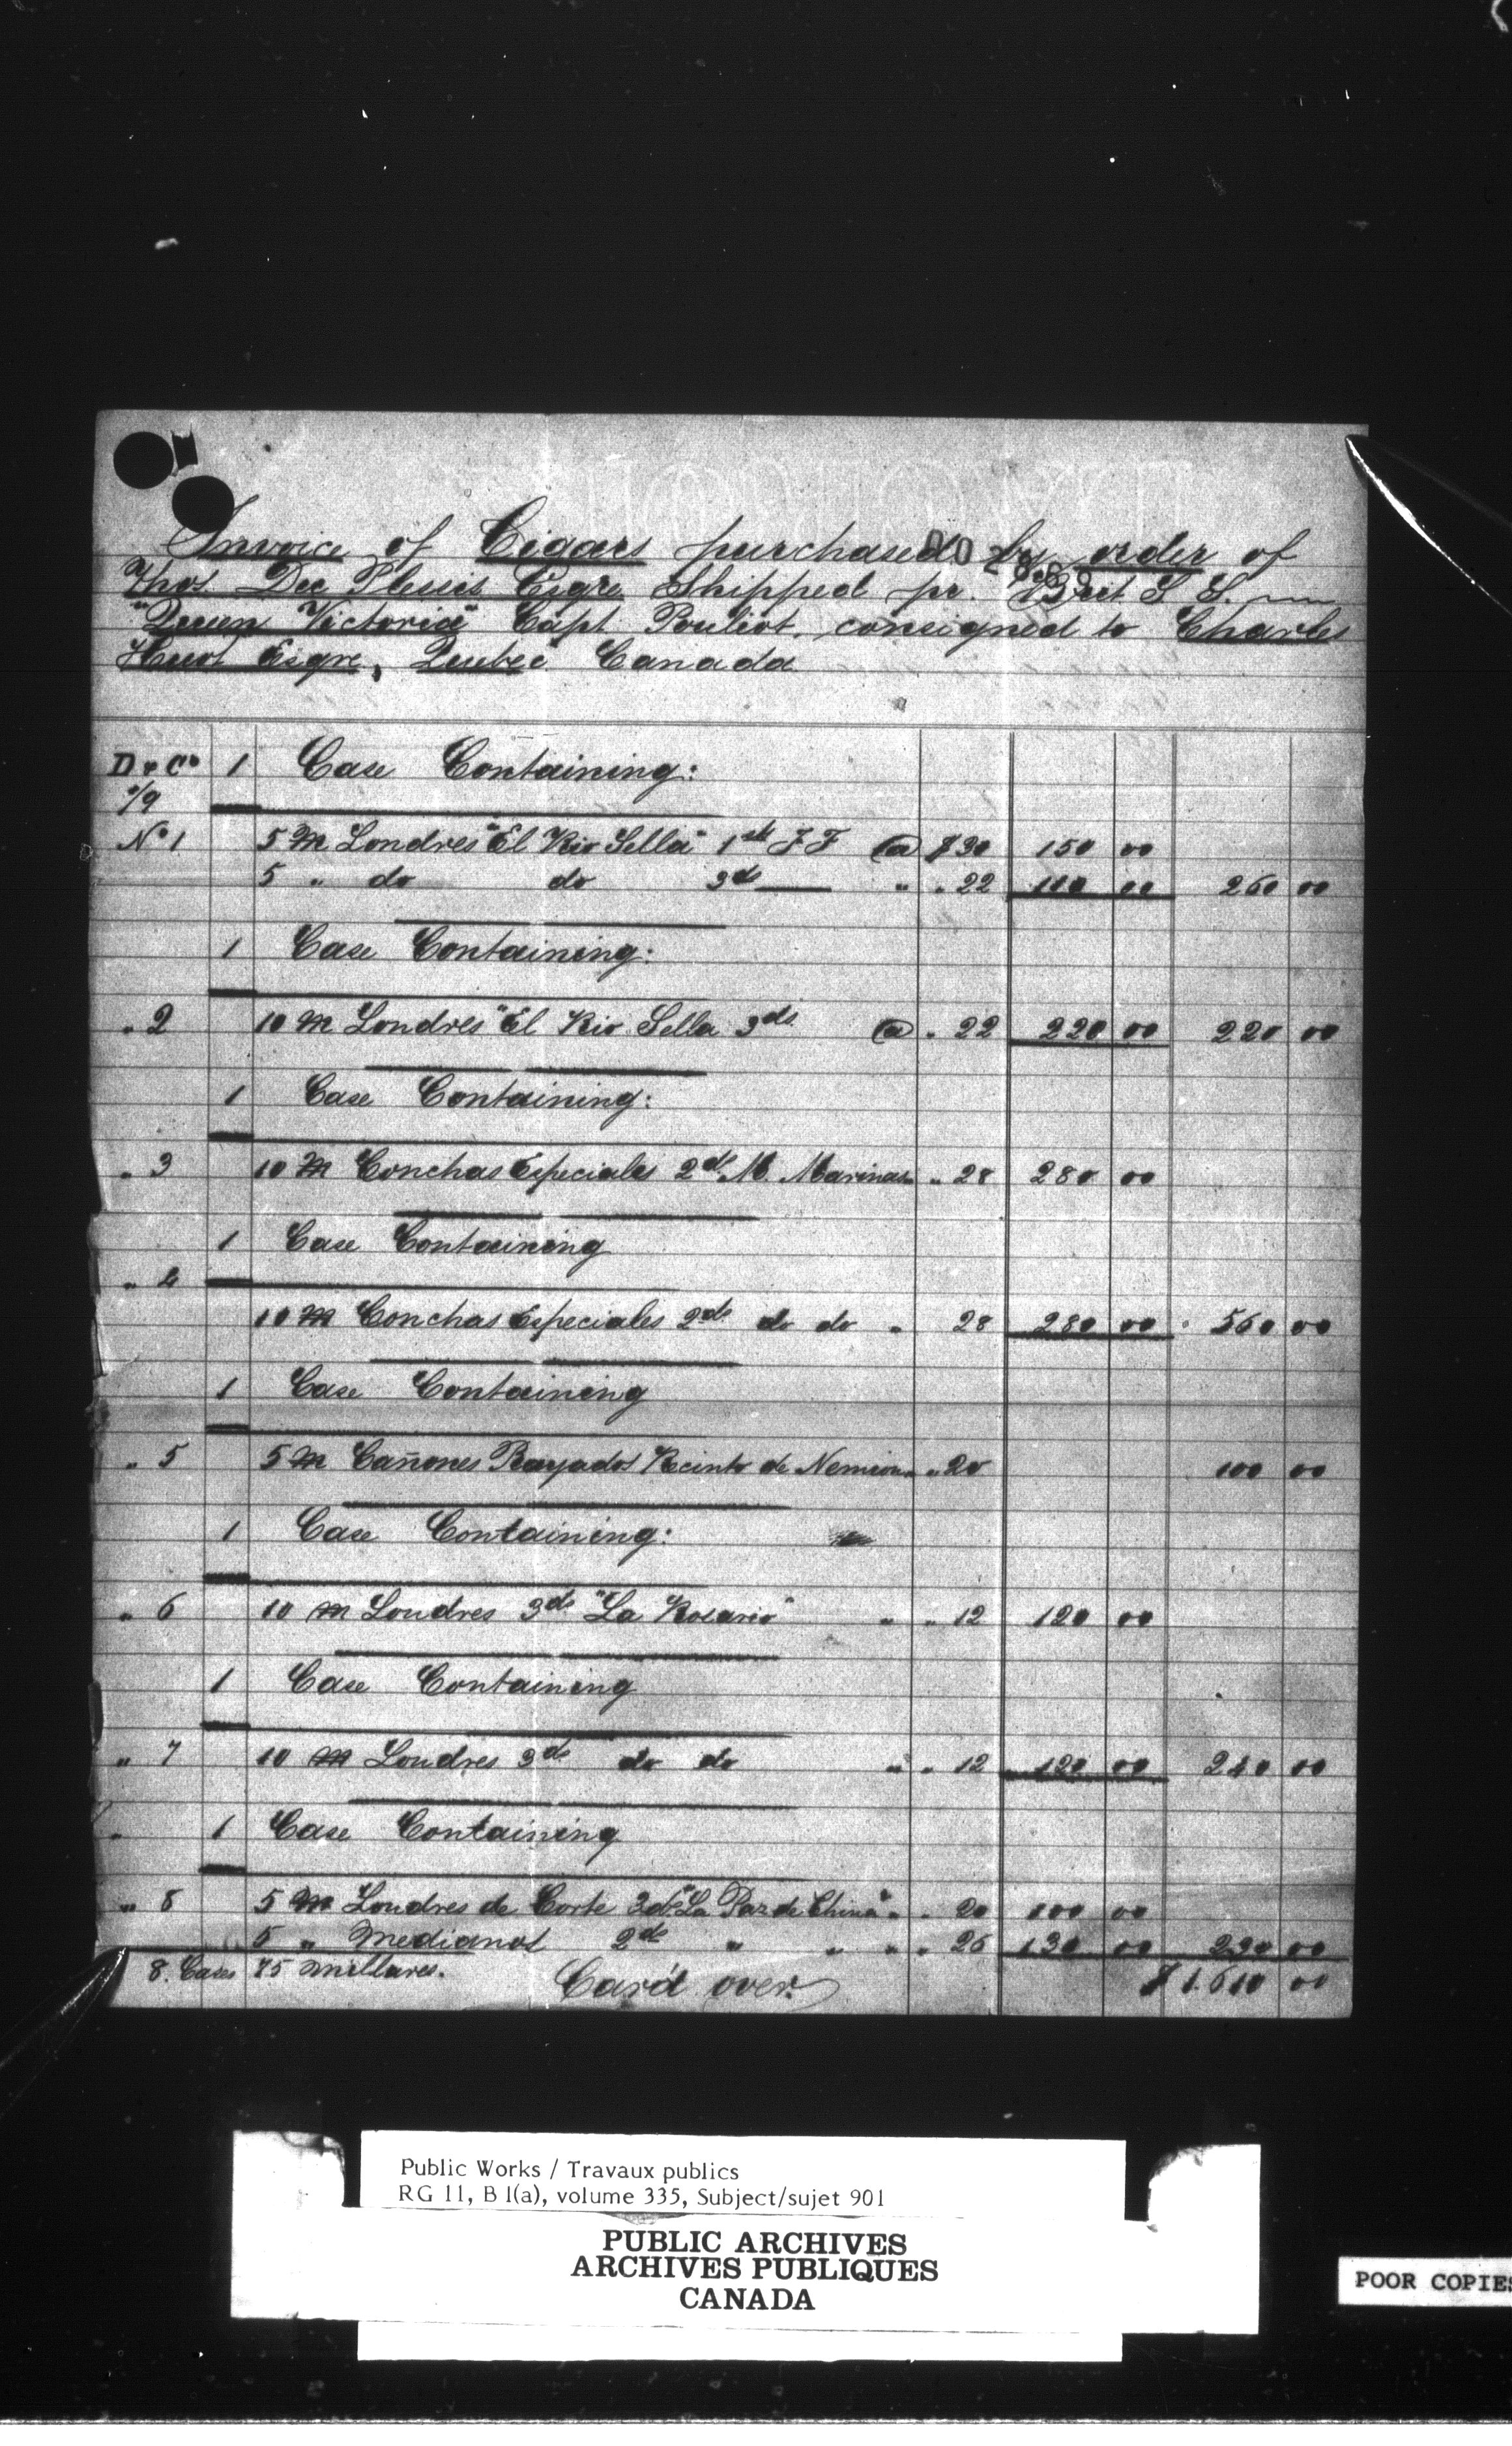 Invoice of Cigars purchased by order of
Thos. Dee Plesis Esqre Shipped pr. Brit S S.
"Queen Victoria" Capt. Pouliot, consigned to Charles
Huot Esqre, Quebec Canada
D & Co 1 Case Containing:
1/9
No 1 5 M Londres "El Rio Sella" 1st F F @ $30 150 00
5 " do do 3ds " " 22 110 00 260 00
1 Case Containing:
" 2 10 M Londres "El Rio Sella 3ds @ " 22 220 00 220 00
1 Case Containing:
" 3 10 M Conchas Especiales 2ds M. Marinas " 28 280 00
1 Case Containing
" 4
10 M Conchas Especiales 2ds do do " 28 280 00 560 00
1 Case Containing
" 5 5 M Cañones Rayados Recinto de " 20 100 00
1 Case Containing:
" 6 10 M Londres 3ds "La Rosario" " " 12 120 00
1 Case Containing
" 7 10 M Londres 3ds do do " " 12 120 00 240 00
1 Case Containing
" 8 5 M Londres de Corte 2ds "La Paz de China" " " 20 100 00
5 " Medianos 2ds " " " " 26 130 00 230 00
8. Cases 75 millares. Car'd over. $ 1.610 00
Public Works / Travaux publics
RG 11, B 1(a), volume 335, Subject/sujet 901
PUBLIC ARCHIVES
ARCHIVES PUBLIQUES
CANADA
POOR COPIES